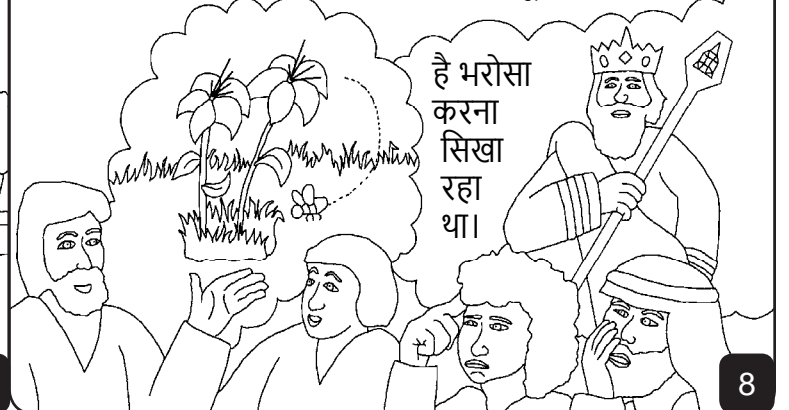 है भरोसा
करना
सिखा
रहा
था।
8